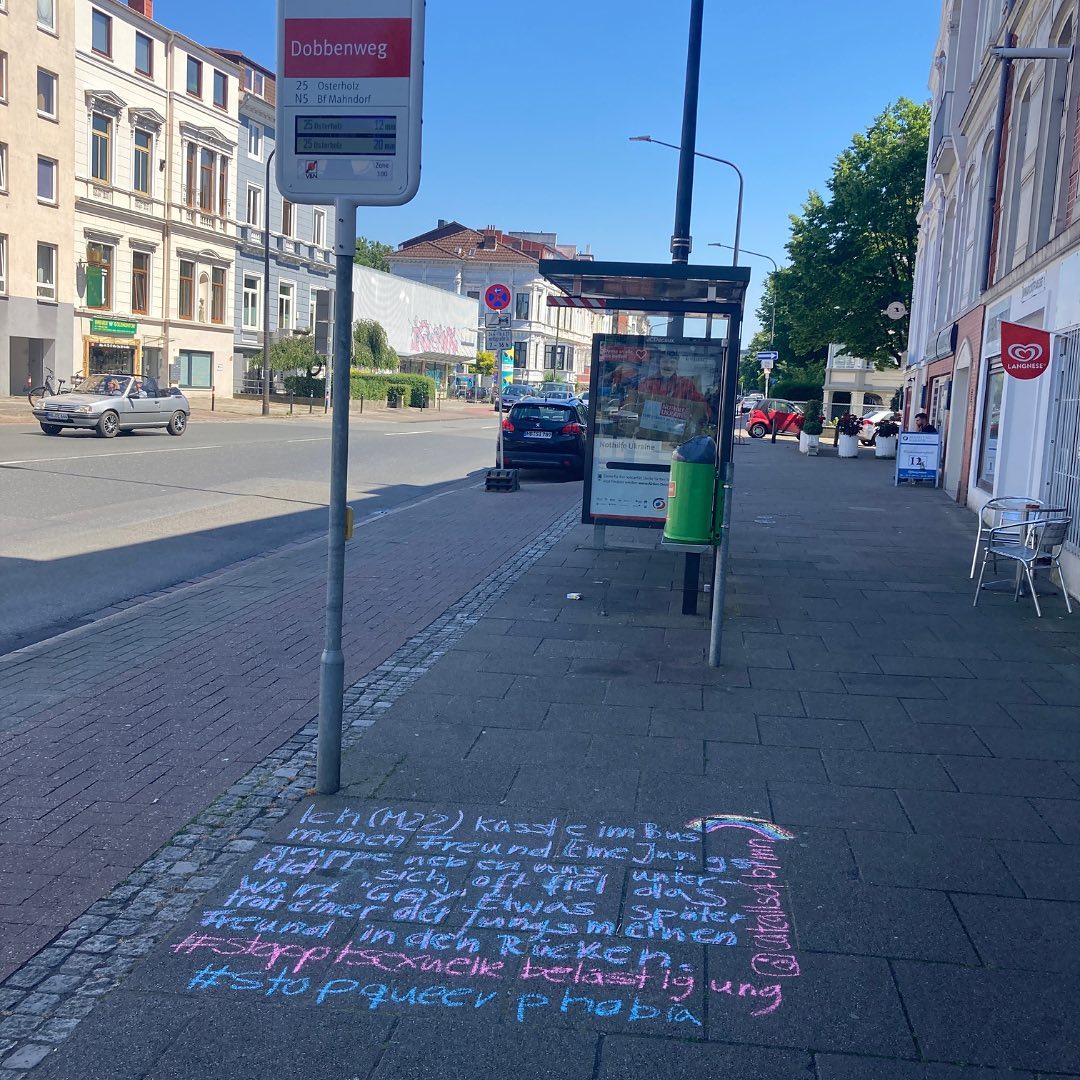 Dobbenweg
25 Osterholz
N5 Bf Mahndorf
25 Osterholz 12 min
25 Osterholz 20 min
VBN
Zone
100
JCDecaux
Nothilfe Ukraine
LANGNESE
Ich (M22) küsste im Bus
meinen Freund. Eine Jungs
gruppe neben uns unter
hielt sich, oft fiel das
Wort "GAY". Etwas später
trat einer der Jungs meinen
Freund in den Rücken.
#stopptsexuellebelästigung
#stopqueerphobia
@catcallsofbrmn